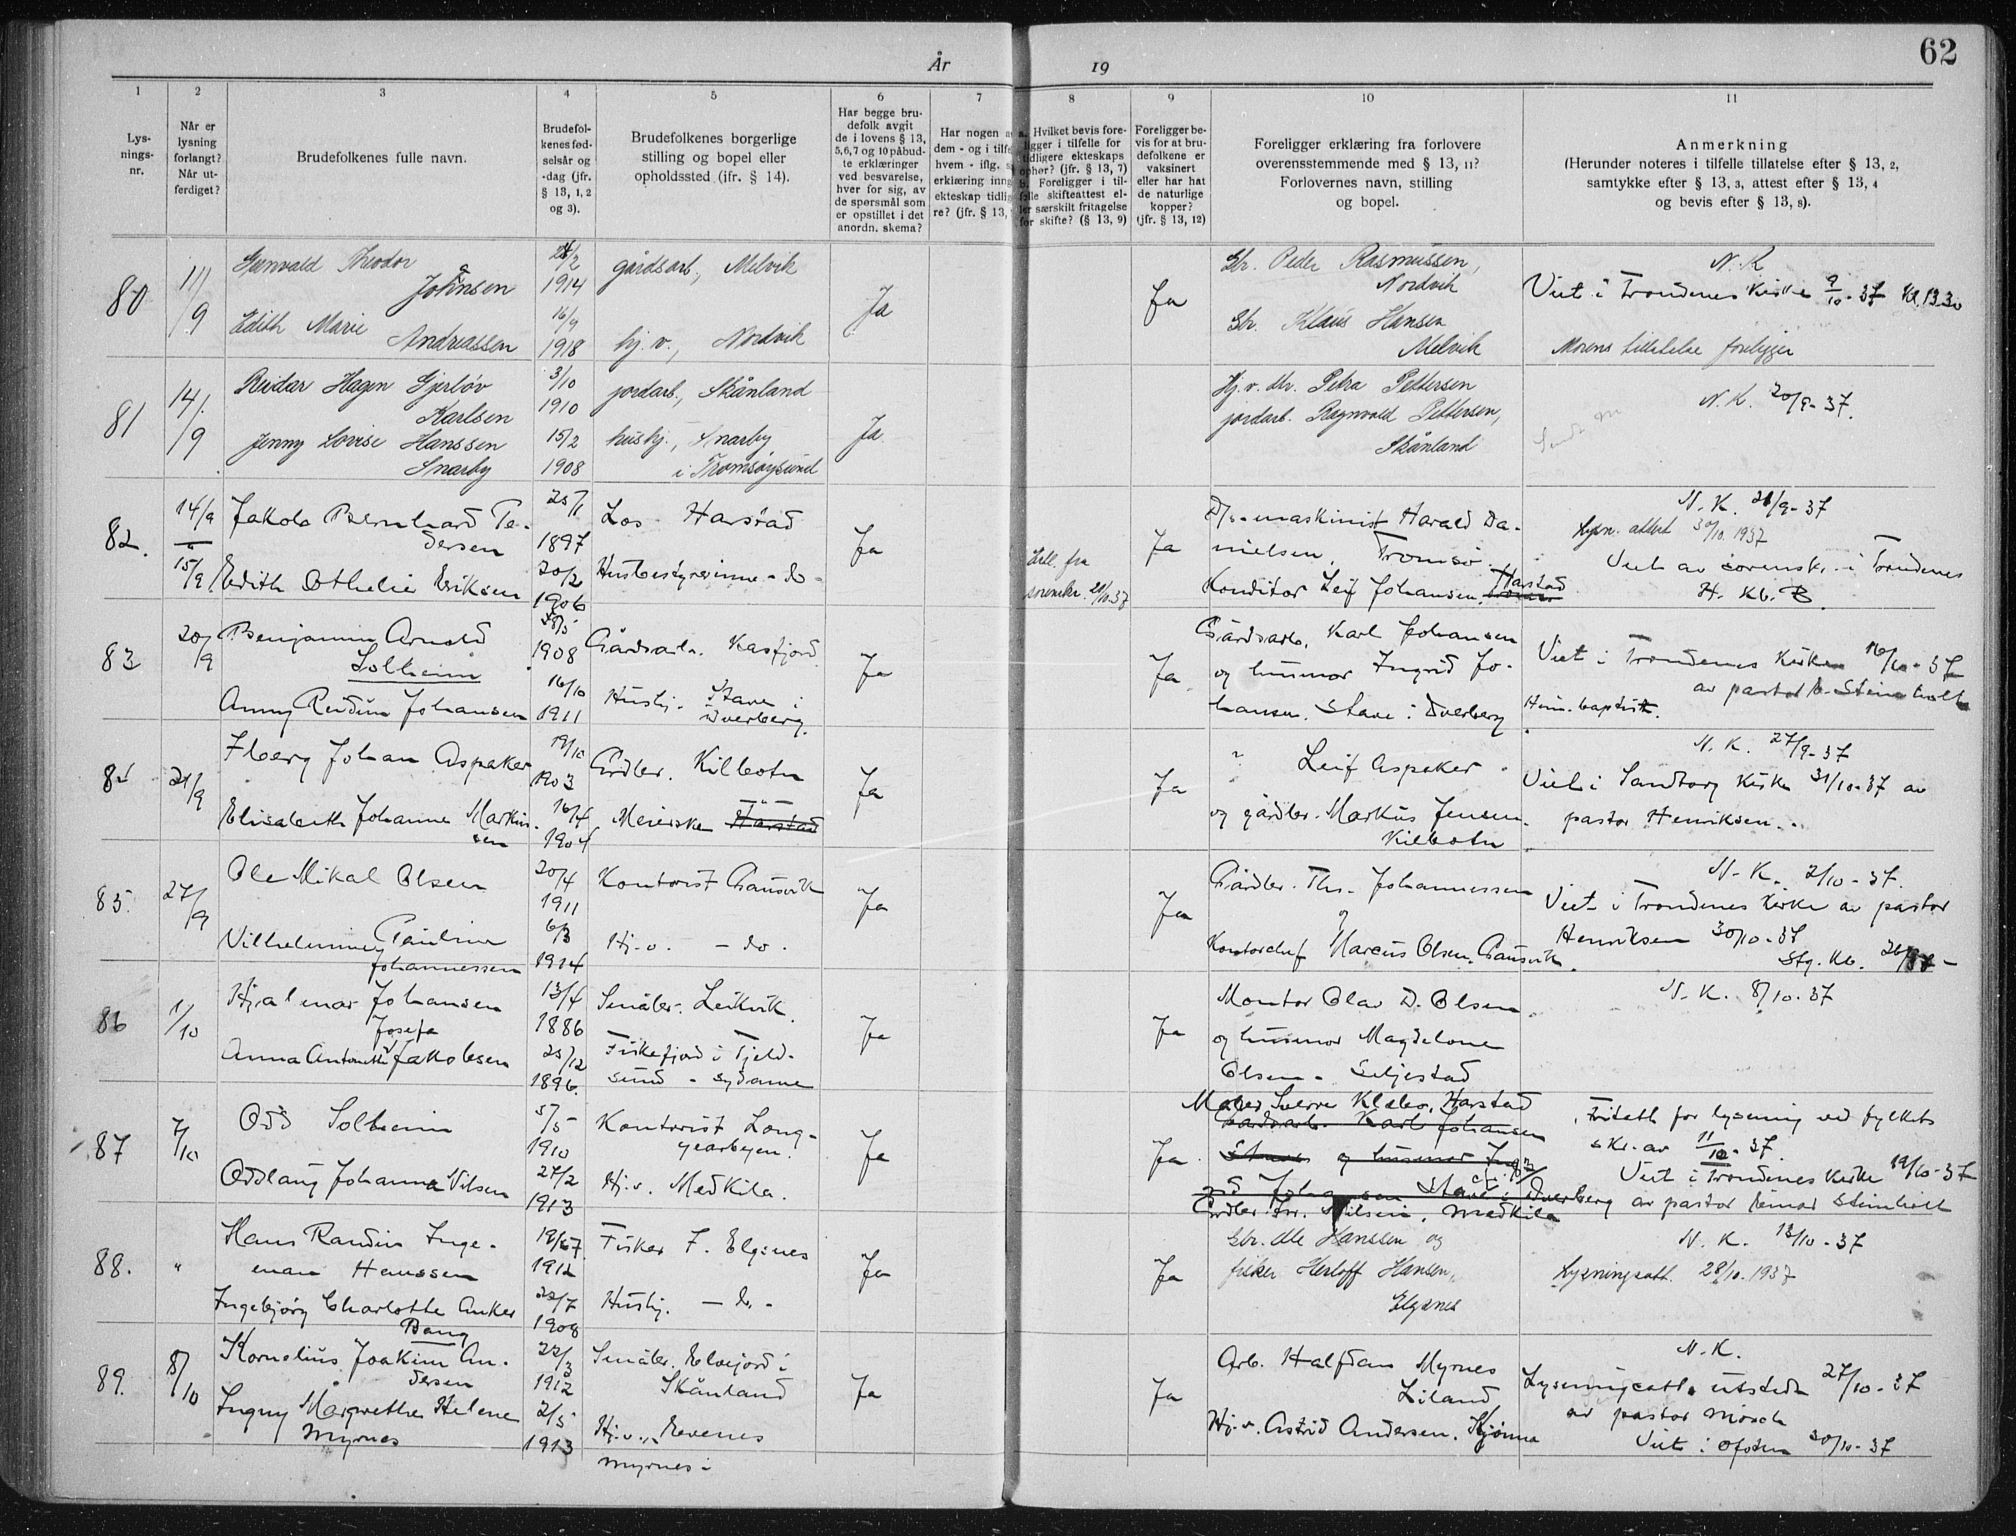 62
År 19
1 2 3 4 5 6 7 8 9 10 11
Lys-
nings-
nr.
Når er
lysning
forlangt?
Når ut-
ferdiget?
Brudefolkenes fulle navn.
Brudefol-
kenes fød-
selsår og
-dag (jfr.
§ 13, 1, 2
og 3).
Brudefolkenes borgerlige
stilling og bopel eller
opholdssted (ifr. § 14).
Har begge bru-
defolk avgit
de i lovens § 13,
5,6,7 og 10 påbud-
te erklæringer
ved besvarelse,
hver for sig, av
de spørsmål som
er opstillet i det
anordn. skema?
Har nogen a
dem - og i tilfe
hvem - iflg. s
erklæring inng
ekteskap tidlig
re? (jfr. § 13,
a. Hvilket bevis fore-
ligger i tilfelle for
tidligere ekteskaps
ophør? (jfr. § 13, 7)
b. Foreligger i til-
felle skifteattest el-
ler særskilt fritagelse
for skifte? (§ 13, 9)
Foreligger be-
vis for at bru-
defolkene er
vaksinert
eller har hat
de naturlige
kopper?
(jfr. § 13, 12)
Foreligger erklæring fra forlovere
overensstemmende med § 13, 11?
Forlovernes navn, stilling
og bopel.
Anmerkning
(Herunder noteres i tilfelle tillatelse efter § 13, 2,
samtykke efter § 13, 3, attest efter § 13, 4
og bevis efter § 13, 8).
80
11/9
Gunvald Theodor
Johnsen
/2
1914
gårdsarb., Melvik
Edith Marie
Andreassen
16/9
1918
hj. v., Nordvik
Ja
Ja
Gbr. Peder Rasmussen,
Nordvik
Gbr. Klaus Hansen
Melvik
N. K
Viet i Trondenes kirke 9/10-37 kl. 13.30
Morens tillatelse foreligger
81
14/9
Reidar Hagen Gjerløv
Karlsen
3/10
1910
jordarb., Skånland
Jenny Lovise Hanssen
Snarby
15/2
1908
hushj., Snarby
i Tromsøysund
Ja
Hj. v. Petra Pettersen
jordarb. Ragnvald Pettersen,
Skånland
N. K. 20/9-37.
82.
14/9
15/9
Jakob Bernhard Pe-
dersen
25/1
1897
Los Harstad
Edith Othelie Eriksen
20/2
1906
Husbestyrerinne - do -
Ja
Till. fra
sorenskr. 28/10 37
Ja
D/s-maskinist Harald Da-
nielsen, Tromsø
Konditor Leif Johansen, Harstad
N. K. 21/9-37
Lysn. attest 30/10 1937
Viet av sorenskr. i Trondenes
H. Kb. B.
83
20/9
Benjamin Arnold
Solheim
/5
1908
Gårdsarb. Kasfjord
Anny Reidun Johansen
16/10
1911
Hushj. Stave i
Dverberg.
Ja
Ja
Gårdsarb. Karl Johansen
og husmor Ingrid Jo-
hansen. Stave i Dverberg
Viet i Trondenes Kirke 16/10-37
av pastor E. Steinholt
Hun. baptist.
84
21/9
Floery Johan Aspaker
19/10
1903
Grdbr. Kilbotn
Elisabeth Johanne Markus-
sen
16/4
1904
Meierske Harstad
Ja
Ja
" Leif Aspaker
og gårdbr. Markus Jensen
Kilbotn
N. K. 27/9-37
Viet i Sandtorg kirke 31/10-37 av
pastor Henriksen.
85.
27/9
Ole Mikal Olsen
20/4
1911
Kontorist Gausvik
Vilhelmine Pauline
Johannessen
6/3
1914
Hj.v. - do.
Ja
Ja
Gårdbr. Ths. Johannessen
og
Kontorchef Marcus Olsen. Gausvik.
N. K. 2/10-37.
Viet i Trondenes kirke av pastor
Henriksen 30/10-37
Stg. Kb.
86
1/10
Hjalmar Johansen
13/4
1886
Småbr. Leikvik.
Anna Antonette Josefa Jakobsen
25/12
1896.
Fiskefjord i Tjeld-
sund - sydame
Ja
Ja
Montør Olav D. Olsen
og husmor Magdelone
Olsen - Seljestad
N. K. 8/10-37
87
7/10
Odd Solheim
5/5
1910
Kontorist Long-
yearbyen.
Oddlaug Johanna Nilsen
27/2
1913
Hj.v. Medkila.
Ja
Ja
Maler Sverre Klæbo, Harstad
Gårdsarb. Karl Johansen
Stave og husmor Ing-
rid Johansen Stave i Dverberg
Grdbr. Nilsen, Medkila
Fritatt for lysning ved fylkets
skr. av 11/10-37.
Viet i Trondenes kirke 19/10-37
av pastor Einar Steinholt
88.
"
Hans Randin Inge-
man Hanssen
1912
Fisker F. Elgsnes
Ingebjørg Charlotte Anker
Bang
1908
Hushj. - do -
Ja
Ja
Gbr. Ole Hanssen og
fisker Herloff Hansen,
Elgsnes
N. K. 13/10-37
Lysningsatt. 28/10.1937
89.
8/10
Kornelius Joakim An-
dersen
22/3
1912
Småbr. Elvejord i
Skånland
Ingny Margrethe Helene
Myrnes
2/5
1913
Hj.v., Evenes
Myrnes i
Ja
Ja
Arb. Halfdan Myrnes
Liland
Hj.v. Astrid Andersen. Kjønna
N. K.
Lysningsatt. utstedt 27/10-37
av pastor Mosch
Viet i Ofoten 30/10-37